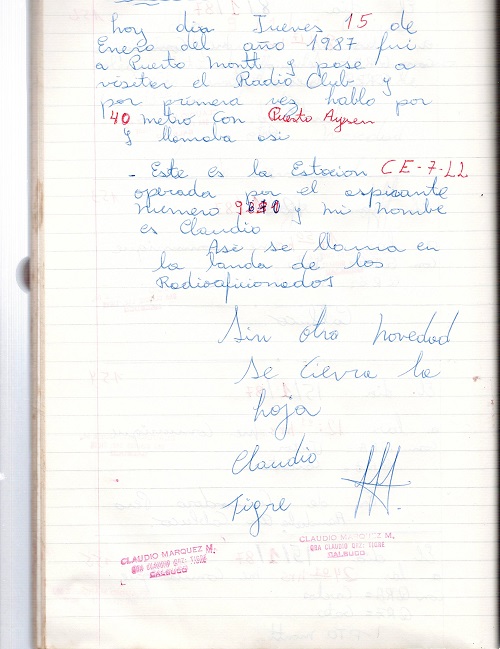 hoy dia Jueves 15 de
Enero del año 1987 fui
a Puerto Montt y pase a
visitar el Radio Club y
por primera vez hablo por
40 metro con Puerto Aysen
y llamaba asi
- Este es la Estacion CE-7-LL
operada por el aspirante
numero y mi nombre
es Claudio
Asi se llama en
la banda de los
Radioaficionados
Sin otra novedad
se cierra la
hoja
Claudio
Tigre
CLAUDIO MARQUEZ M.
QRA CLAUDIO QRZ: TIGRE
CALBUCO
CLAUDIO MARQUEZ M.
QRA CLAUDIO QRZ: TIGRE
CALBUCO